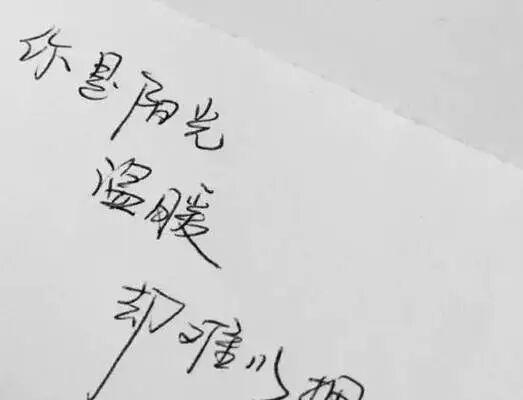 你是阳光
温暖
却难以拥